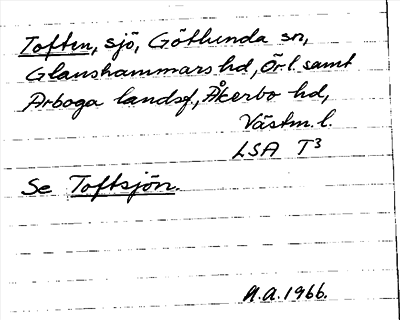 Toften, sjö, Götlunda sn,
Glanshammars hd, Ör. l. samt
Arboga landsf., Åkerbo hd,
Västm. l.
LSA T3
Se Toftsjön.
A.A. 1966.